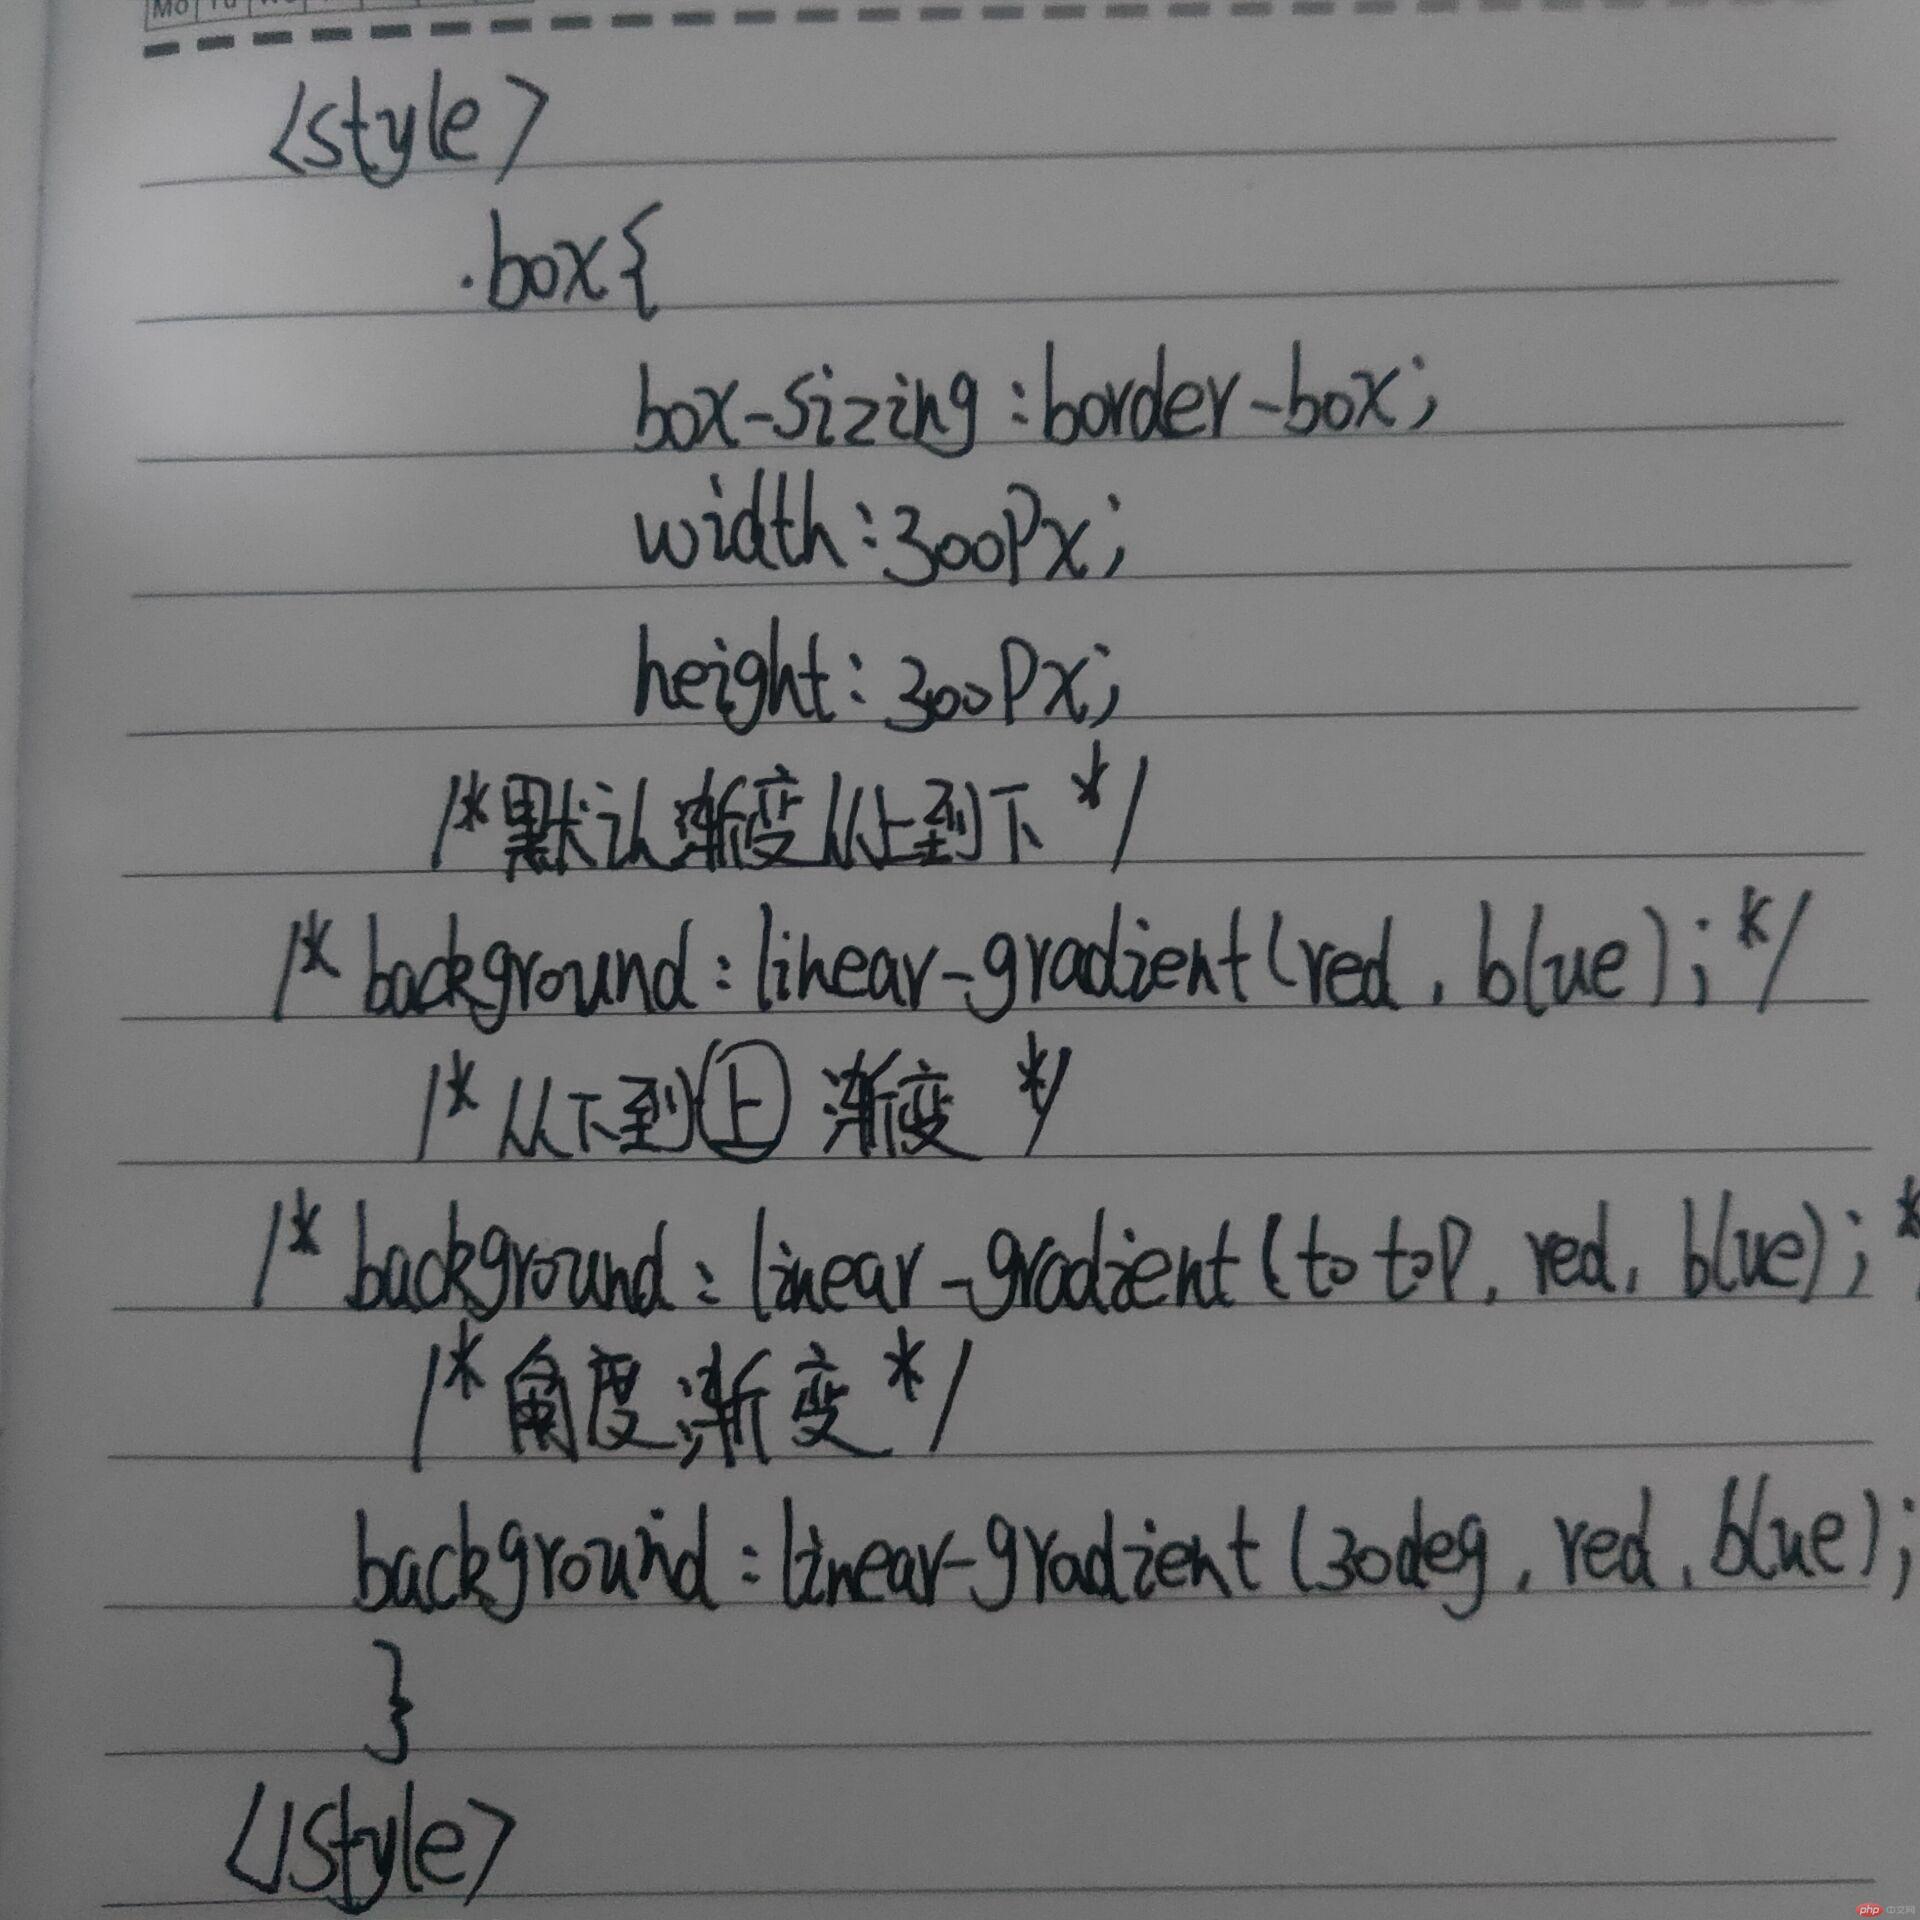 Mo Tu
<style>
.box{
box-sizing:border-box;
width:300Px;
height:300Px;
/*默认渐变从上到下*/
/* background:linear-gradient(red, blue);*/
/* 从下到上 渐变 */
/* background:linear-gradient(to top, red, blue);*
/* 角度渐变 */
background:linear-gradient(30deg, red, blue);
}
</style>
php 中文网